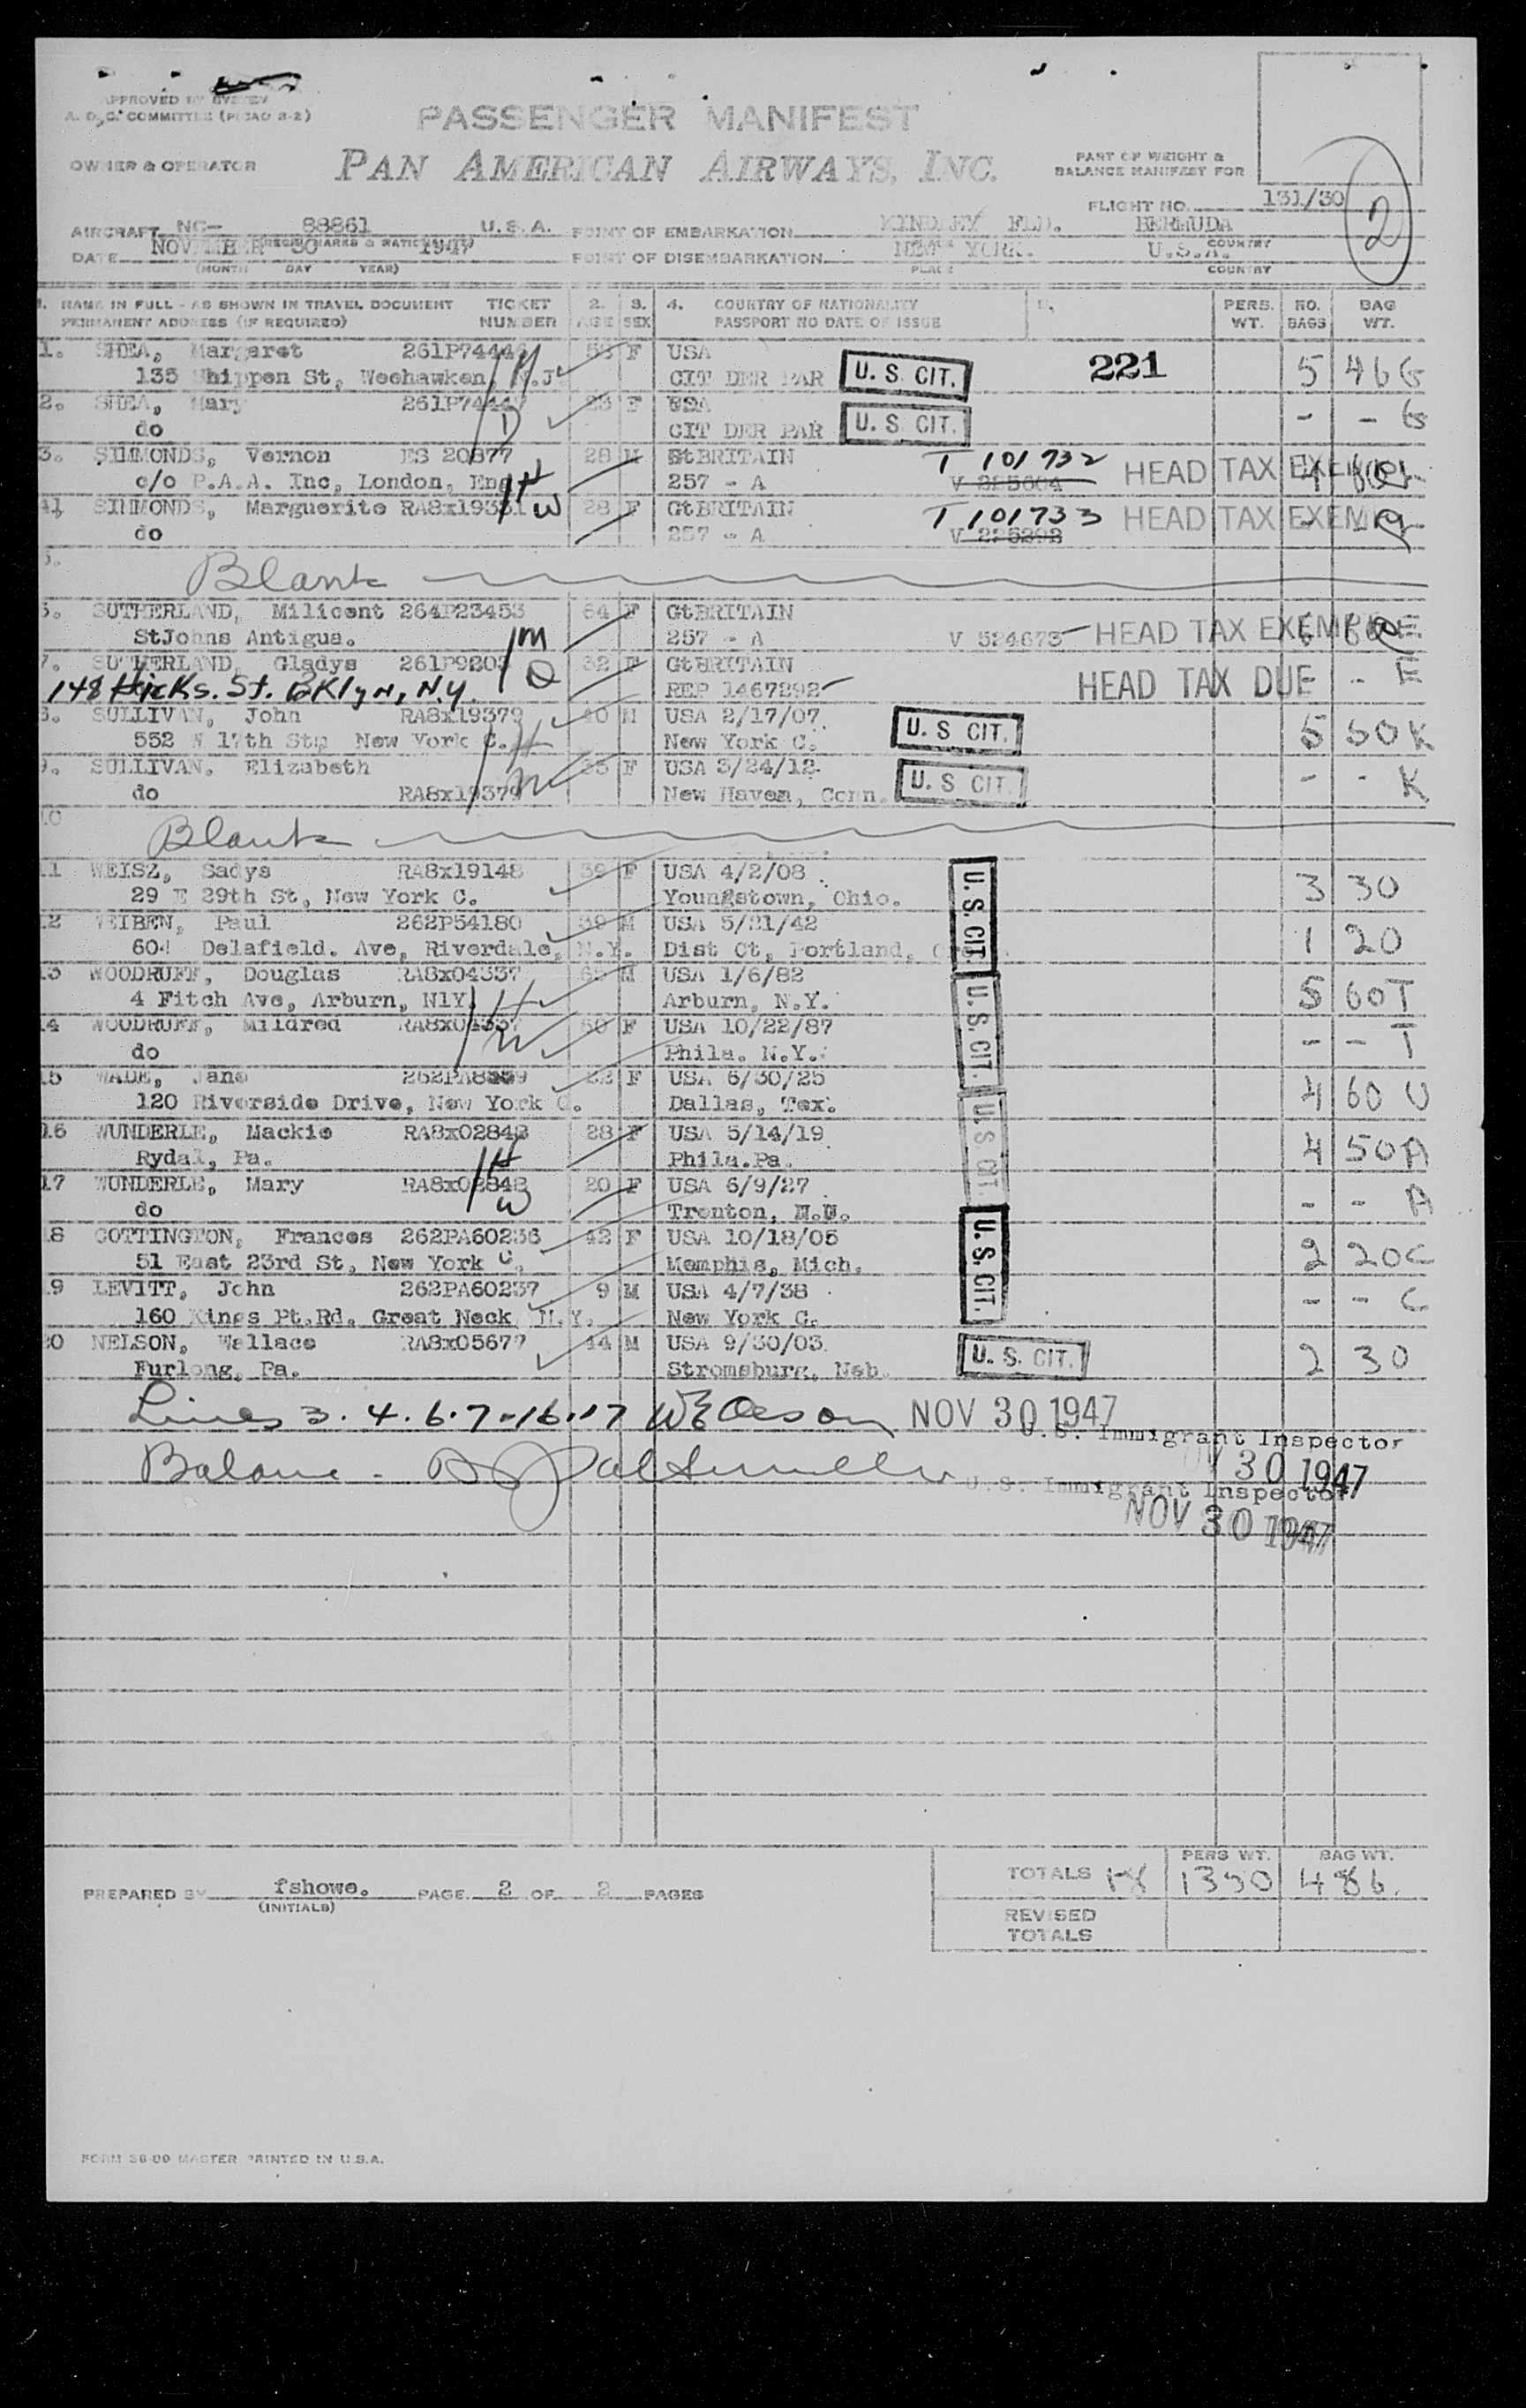 APPROVED BY SYSTEM
A. O. C. COMMITTEE (PICAO 2-2)
PASSENGER MANIFEST
OWNER & OPERATOR PAN AMERICAN AIRWAYS, INC.
PART OF WEIGHT &
BALANCE MANIFEST FOR
FLIGHT NO. 131/30
2
AIRCRAFT NC- 88861 U.S.A. POINT OF EMBARKATION KINDLEY FLD. BERMUDA
(REGIS. MARKS & NATIONALITY) COUNTRY
DATE NOVEMBER 30 1947 POINT OF DISEMBARKATION NEW YORK. U.S.A.
(MONTH DAY YEAR) PLACE COUNTRY
1. NAME IN FULL - AS SHOWN IN TRAVEL DOCUMENT TICKET 2. 3. 4. COUNTRY OF NATIONALITY PERS. NO. BAG
PERMANENT ADDRESS (IF REQUIRED) NUMBER AGE SEX PASSPORT NO DATE OF ISSUE WT. BAGS WT.
1. SHEA, Margaret 261P74446 F USA
135 Shippen St, Weehawken, N.J. CIT DER PAR U. S. CIT. 221 5 46 G
2. SHEA, Mary 261P74447 F USA
do CIT DER PAR U. S. CIT. - - G
3. SIMMONDS, Vernon ES 20877 28 M GtBRITAIN T 101732
c/o P.A.A. Inc, London, Eng. H 257 - A HEAD TAX EXEMPT
4. SIMMONDS, Marguerite RA8x19331 W 28 F GtBRITAIN T 101733 HEAD TAX EXEMPT
do 257 - A
Blank
6. SUTHERLAND, Milicent 264P23453 64 F GtBRITAIN
StJohns Antigua. M 257 - A V 524673 HEAD TAX EXEMPT E
7. SUTHERLAND, Gladys D 32 F GtBRITAIN
148 Hicks. St. BKlyn, N.Y. REP 1467292 HEAD TAX DUE - E
8. SULLIVAN, John RA8x19379 40 M USA 2/17/07
552 W 17th St, New York C. H New York C. U. S. CIT. 5 50 K
9. SULLIVAN. Elizabeth 35 F USA 3/24/12
do RA8x19379 W New Haven, Conn. U. S. CIT. - - K
10
Blank
11 WEISZ, Sadys RA8x19148 39 F USA 4/2/08
29 E 29th St, New York C. Youngstown, Ohio. U. S. CIT. 3 30
12 WEIBEN, Paul 262P54180 39 M USA 5/21/42
604 Delafield. Ave, Riverdale, N.Y. Dist Ct, Portland, 1 20
13 WOODRUFF, Douglas RA8x04337 65 M USA 1/6/82
4 Fitch Ave, Arburn, N1Y. H Arburn, N.Y. U. S. CIT. 5 60 T
14 WOODRUFF, Mildred RA8x04337 60 F USA 10/22/87
do W Phila. N.Y. - - T
15 WADE, Jane 22 F USA 6/30/25
120 Riverside Drive, New York C. Dallas, Tex. 4 60 U
16 WUNDERLE, Mackie RA8x02848 28 F USA 5/14/19 U. S. CIT.
Rydal, Pa. H Phila.Pa. 4 50 A
17 WUNDERLE, Mary RA8x02848 20 F USA 6/9/27
do W Trenton, - - A
18 COTTINGTON, Frances 262PA60236 42 F USA 10/18/05 U. S. CIT.
51 East 23rd St, New York C. Memphis, Mich. 2 20 C
19 LEVITT, John 262PA60237 9 M USA 4/7/38
160 Kings Pt.Rd. Great Neck N.Y. New York C. - - C
20 NELSON, Wallace RA8x05677 44 M USA 9/30/03
Furlong, Pa. Stromsburg, Neb. U. S. CIT. 2 30
Lines 3. 4. 6. 7 - 16. 17 NOV 30 1947
U.S. Immigrant Inspector
Balance - NOV 30 1947
U.S. Immigrant Inspector
NOV 30 1947
PERS WT. BAG WT.
TOTALS 18 1350 486
PREPARED BY fshowe. PAGE 2 OF 2 PAGES
(INITIALS)
REVISED
TOTALS
FORM 36-00 MASTER PRINTED IN U.S.A.